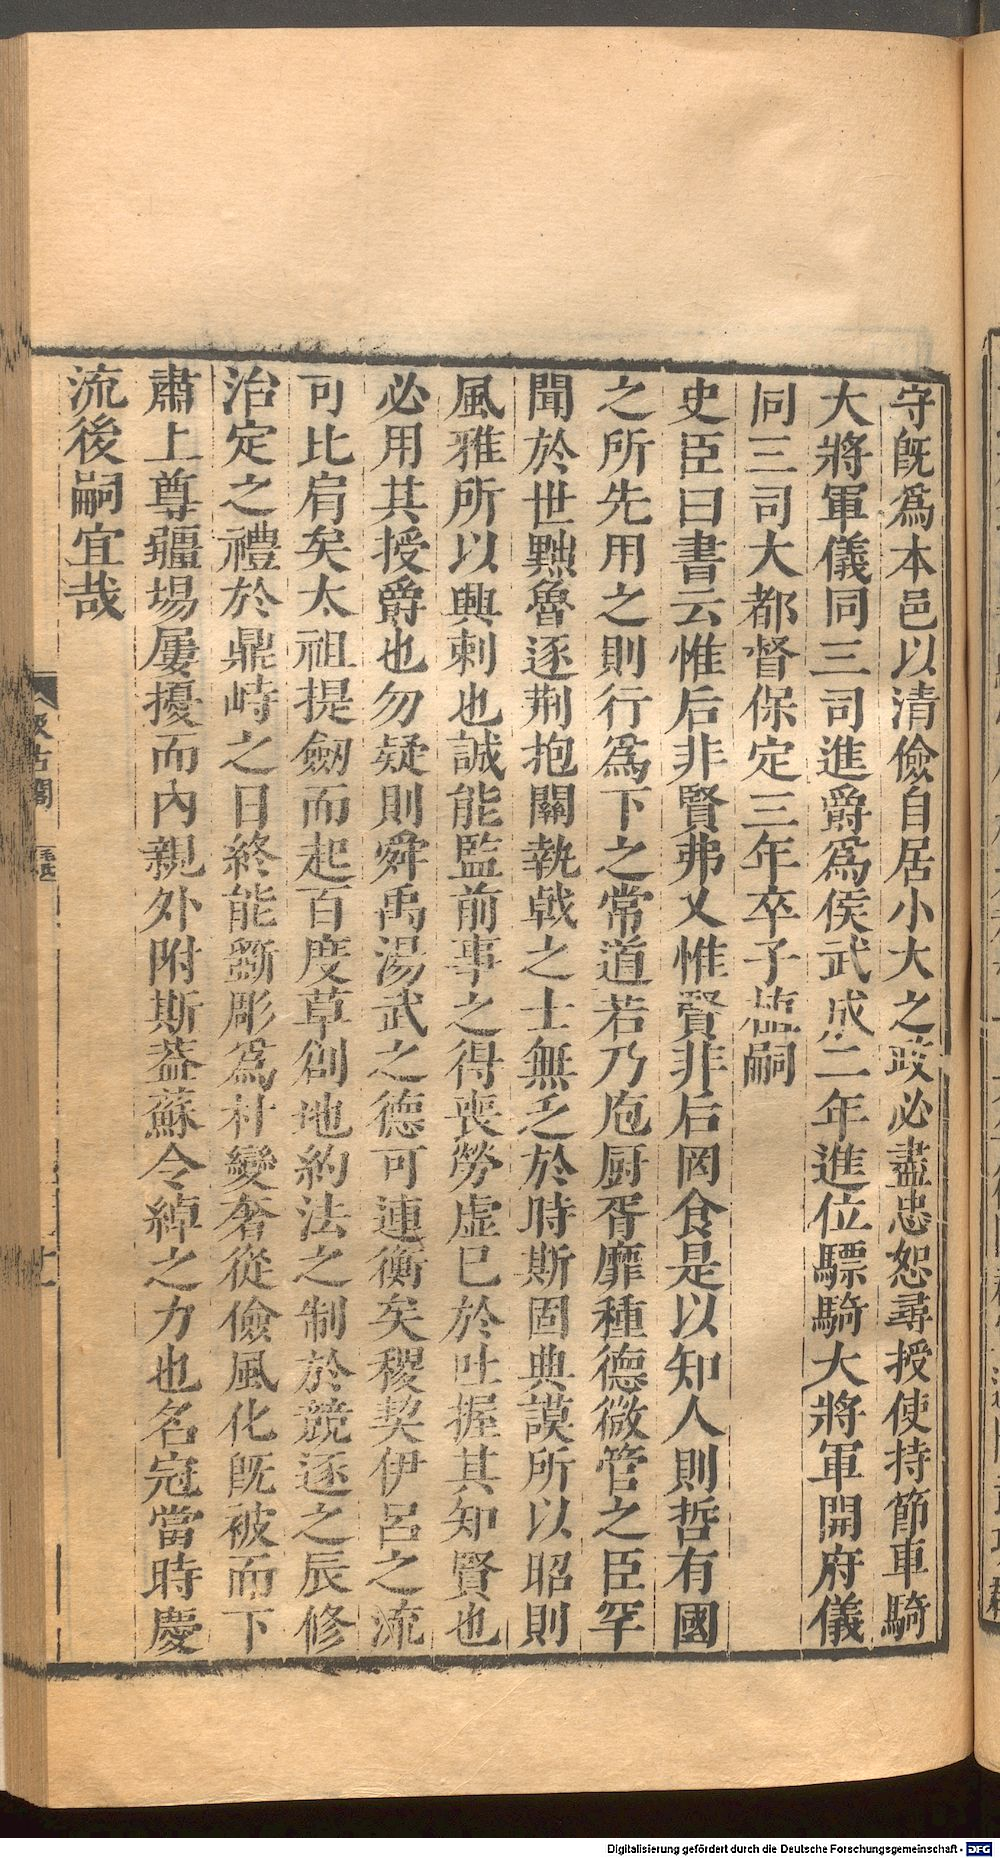 守旣爲本邑以清儉自居小大之政必盡忠恕尋授使持節車騎
大將軍儀同三司進爵爲侯武成二年進位驃騎大將軍開府儀
同三司大都督保定三年卒子植嗣
史臣曰書云惟后非賢弗乂惟賢非后罔食是以知人則哲有國
之所先用之則行爲下之常道若乃庖厨胥靡種德微管之臣罕
聞於世黜魯逐荆抱關執戟之士無乏於時斯固典謨所以昭則
風雅所以興刺也誠能監前事之得喪勞虛已於吐握其知賢也
必用其授爵也勿疑則舜禹湯武之德可連衡矣稷契伊呂之流
可比肩矣太祖提劒而起百度草創施約法之制於競逐之辰修
治定之禮於鼎峙之日終能斵彫爲朴變奢從儉風化旣被而下
肅上尊疆埸屢擾而內親外附斯葢蘇令綽之力也名冠當時慶
流後嗣宜哉
汲古閣
毛氏
Digitalisierung gefördert durch die Deutsche Forschungsgemeinschaft - DFG